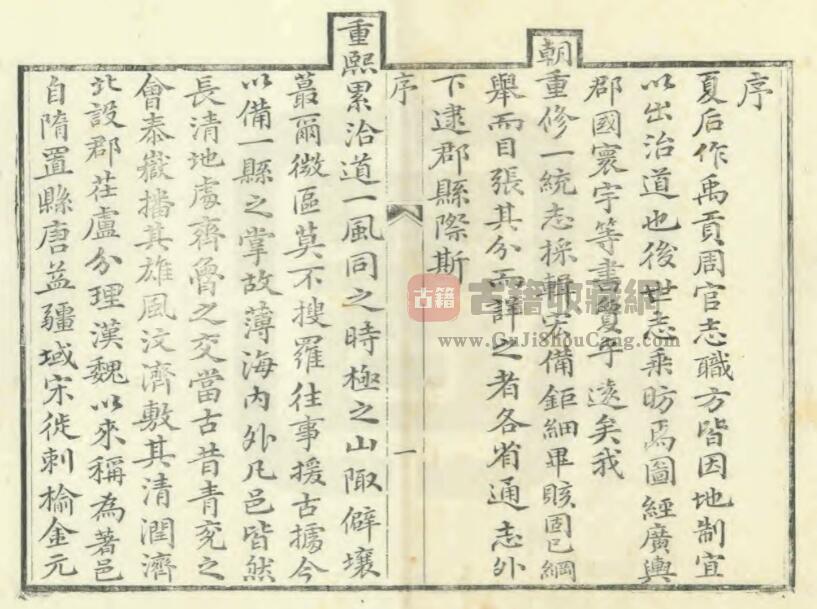 序
夏后作禹貢周官志職方皆因地制宜
以出治道也後世志乘昉焉圖經廣輿
郡國寰宇等書敻乎遠矣我
朝重修一統志採輯宏備鉅細畢賅固已綱
舉而目張其分而詳之者各省通志外
下逮郡縣際斯
序
一
重熙累洽道一風同之時極之山陬僻壤
蕞爾微區莫不搜羅往事援古據今
以備一縣之掌故薄海內外凡邑皆然
長清地處齊魯之交當古昔青兗之
會泰嶽播其雄風汶濟敷其清潤濟
北設郡茌盧分理漢魏以來稱為著邑
自隋置縣唐益疆域宋徙刺榆金元
古籍
古籍收藏網
www.GuJiShouCang.com